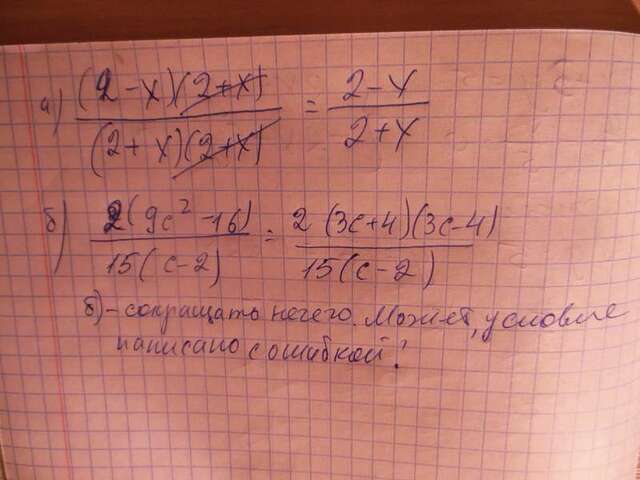 а) (2-х)(2+х) / (2+х)(2+х) = 2-х / 2+х
б) 2(9с² -16) / 15(с-2) = 2(3с+4)(3с-4) / 15(с-2)
б)-сокращать нечего. Может, условие
написано с ошибкой!